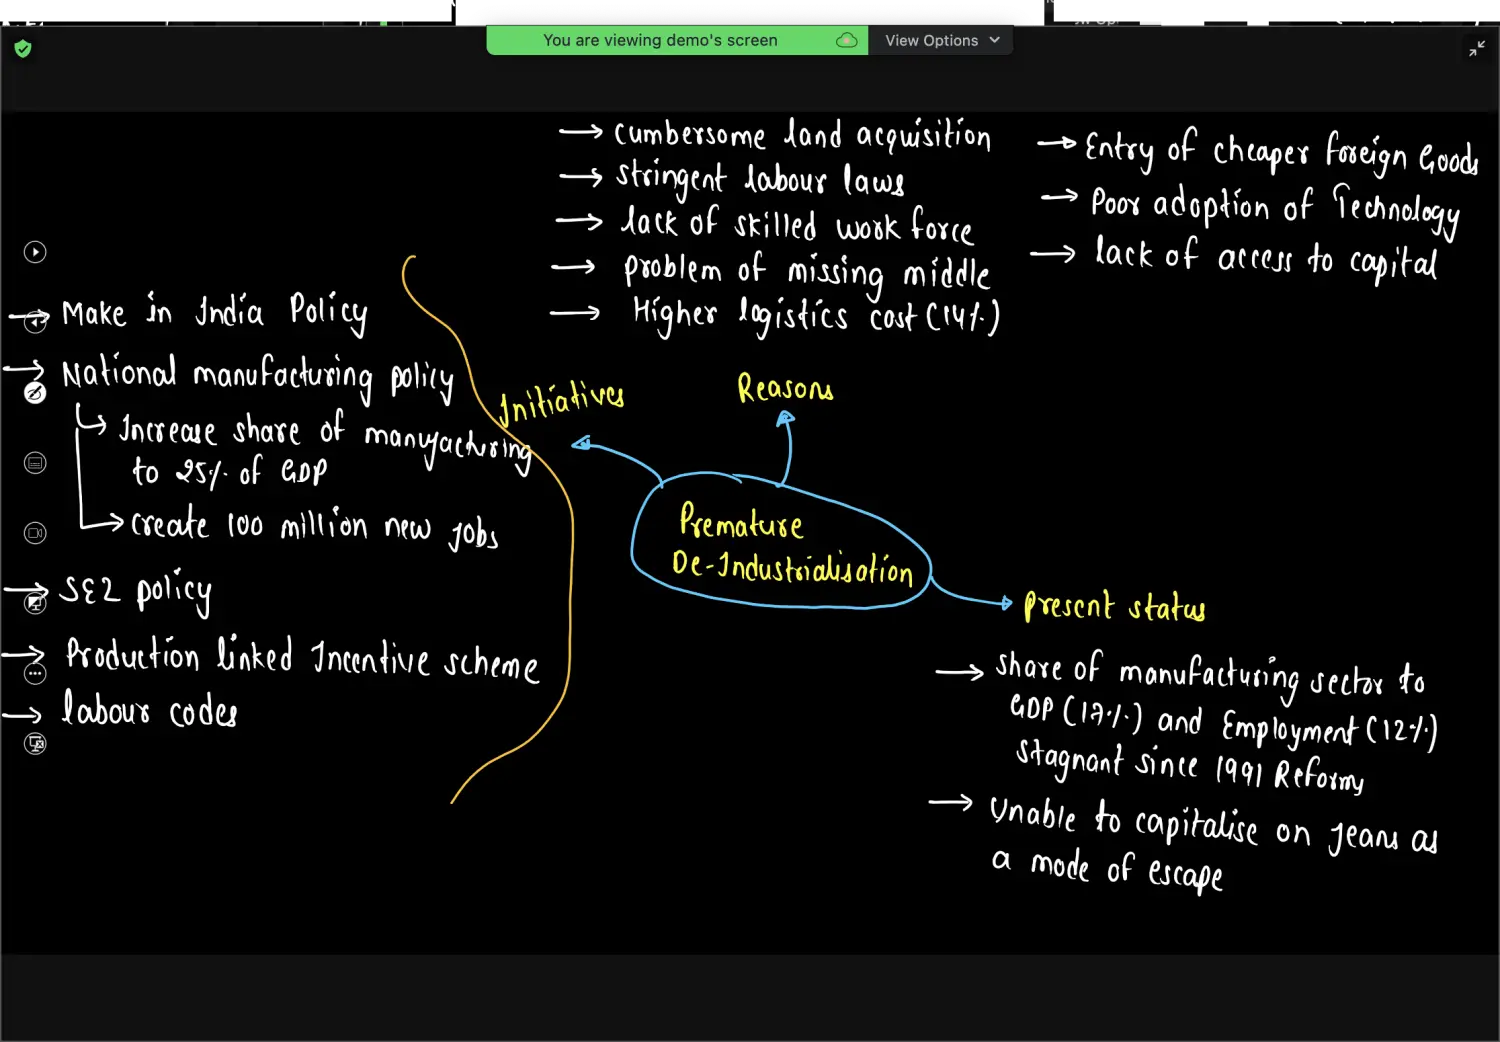 You are viewing demo's screen
View Options
→ cumbersome land acquisition
→ stringent labour laws
→ lack of skilled work force
→ problem of missing middle
→ Higher logistics cost (14%)
→ Entry of cheaper foreign Goods
→ Poor adoption of Technology
→ lack of access to capital
→ Make in India Policy
→ National manufacturing policy
↳ Increase share of manufacturing
to 25% of GDP
↳ create 100 million new jobs
→ SEZ policy
→ Production linked Incentive scheme
→ labour codes
Initiatives
Reasons
Premature
De-Industrialisation
Present status
→ share of manufacturing sector to
GDP (17%) and Employment (12%)
stagnant since 1991 Reforms
→ Unable to capitalise on jeans as
a mode of escape